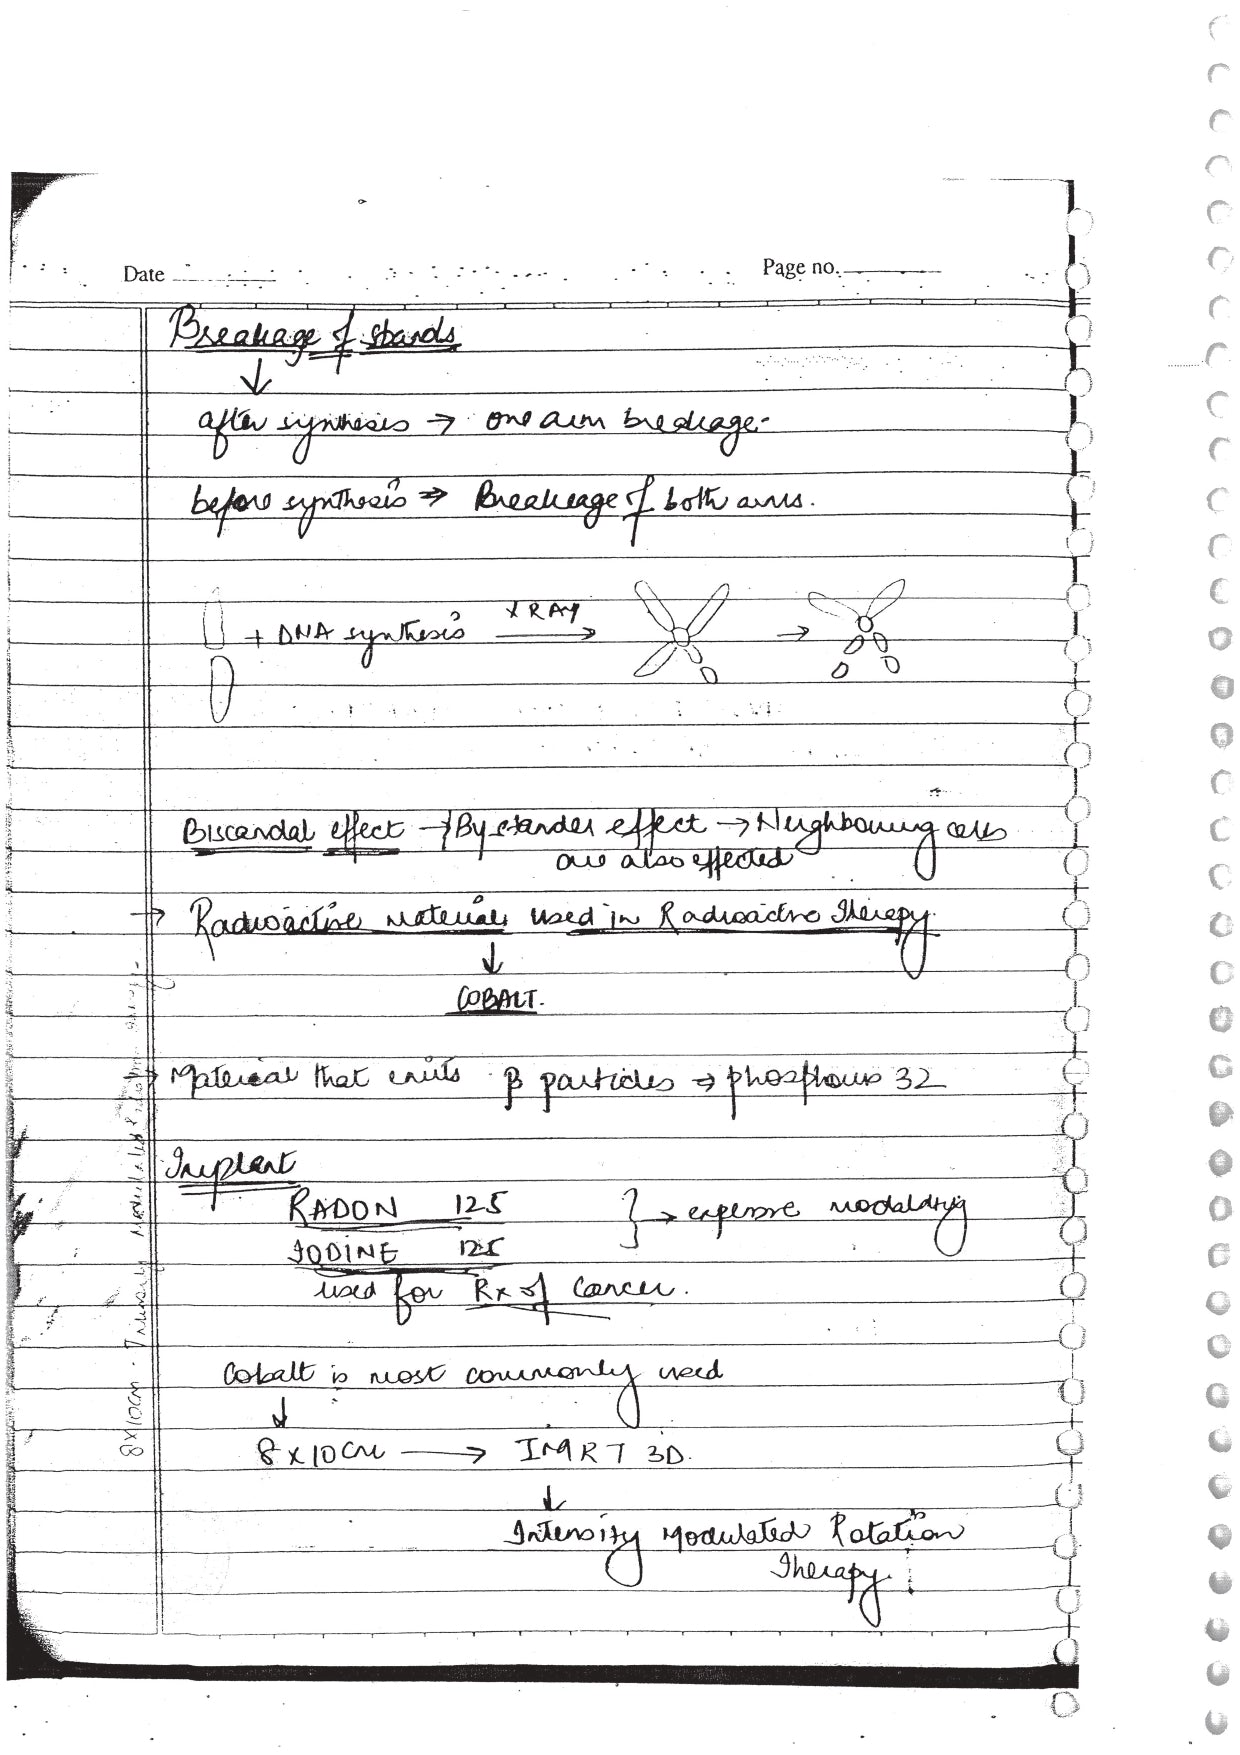 Date
Page no.
Breakage of stands
↓
after synthesis → one arm breakage.
before synthesis ⇒ Breakage of both arms.
+ DNA synthesis X RAY → →
Biscandal effect → Bystander effect → Neighbouring cells
are also effected
→ Radioactive materials used in Radioactive Therapy.
↓
COBALT.
→ Material that emits β particles ⇒ phosphorus 32
Implant
RADON 125
IODINE 125 } → expensive modaldity
used for Rx of Cancer.
Cobalt is most commonly used
↓
8 x 10 cm → IMRT 3D.
↓
Intensity Modulated Rotation
Therapy.
8 x 10 cm. Intensity Modulated